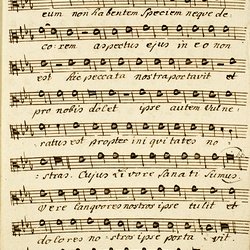 eum non habentem speciem neque de
corem aspectus ejus in eo non
est hic peccata nostra portavit et
pro nobis dolet ipse autem vulne
ratus est propter iniquitates no
stras. Cujus livore sanati sumus
Vere languores nostros ipse tulit et
dolores nostros ipse porta vit